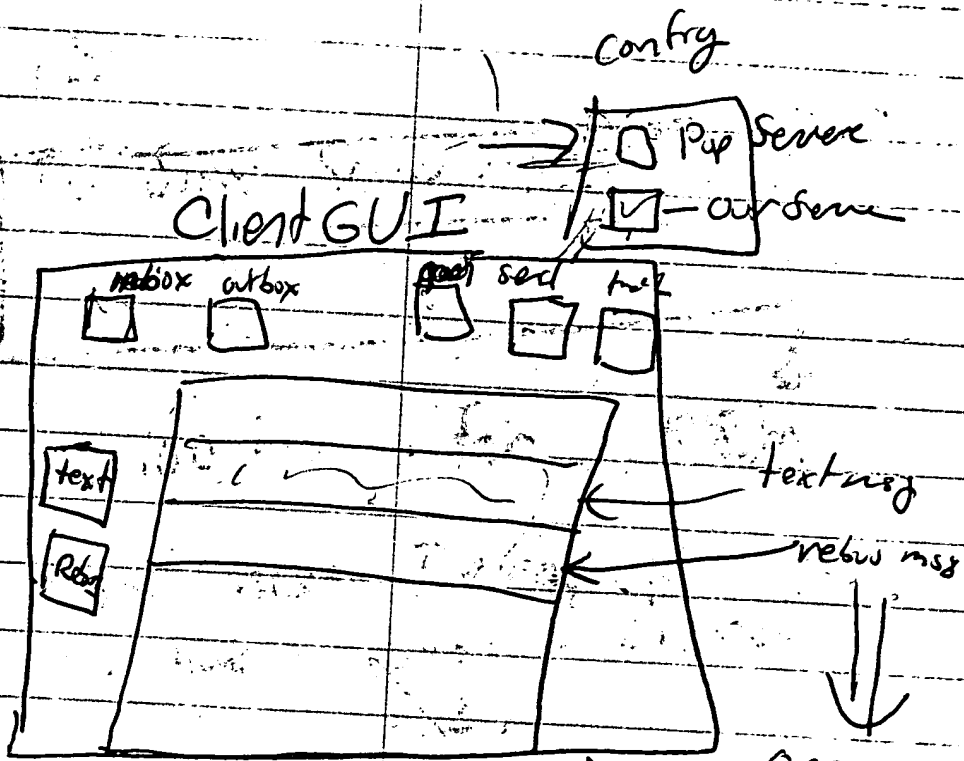 Config
Pop Servere
our Serve
Client GUI
inbox outbox send
text
text msg
Rebus
rebus msg